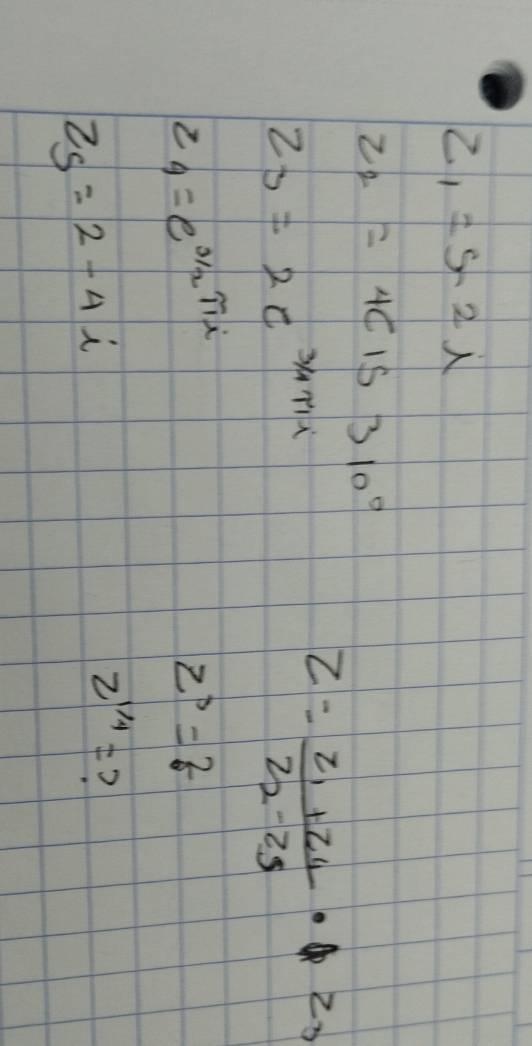 Z1 = 5-2i
Z2 = 4cis 310°
Z3 = 2e^3/4πi
Z4 = e^3/2πi
Z5 = 2-4i
Z = (Z1+Z4)/(Z2-Z5) • Z3
Z^3 = ?
Z^1/4 = ?